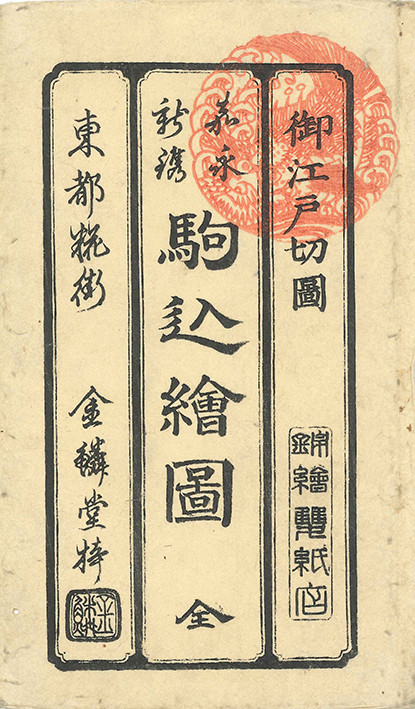 御江戸切圖
錦繪雙紙店
嘉永
新鐫
駒込繪圖 全
東都糀街 金鱗堂梓